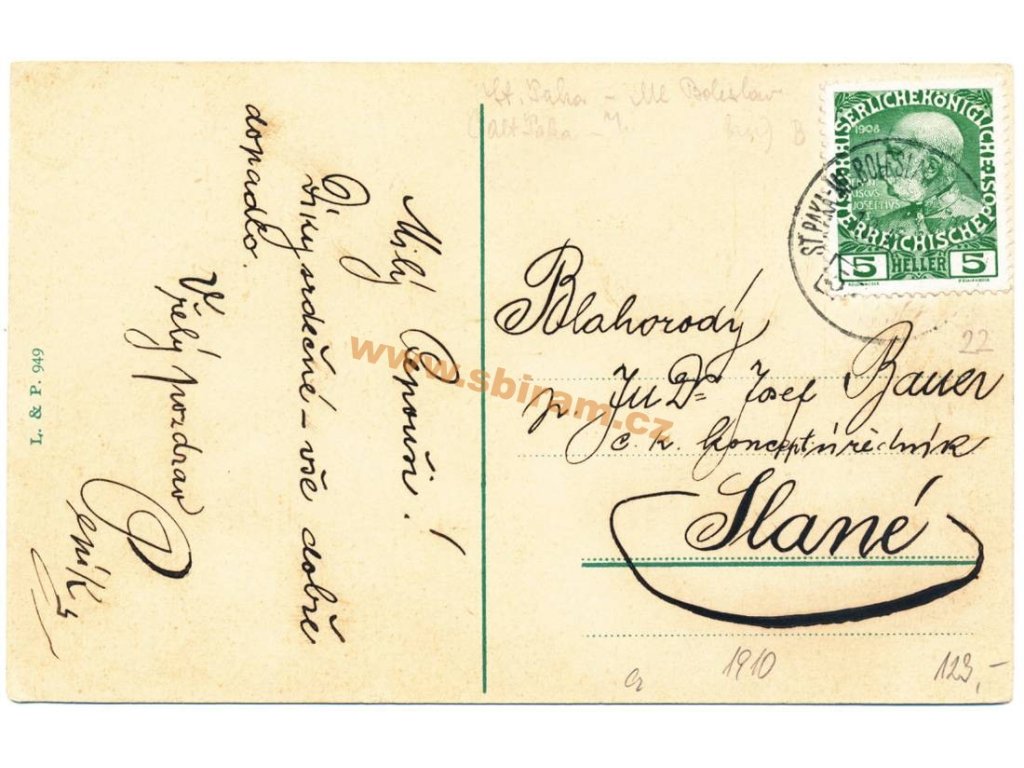 St. Paka - Ml Boleslav
(Alt Paka -
B
KAISERLICHE KÖNIGLICHE ÖSTERREICHISCHE POST
1908
5 HELLER 5
ST. PAKA-ML. BOLESLAV
22
Milý Čepouši!
Díky srdečné - vše dobře
dopadlo.
Vřelý pozdrav
Peník
L. & P. 949
Blahorodý
p JUDr Josef Bauer
c. k. konceptní úředník
Slané
1910
123,-
www.sbiram.cz